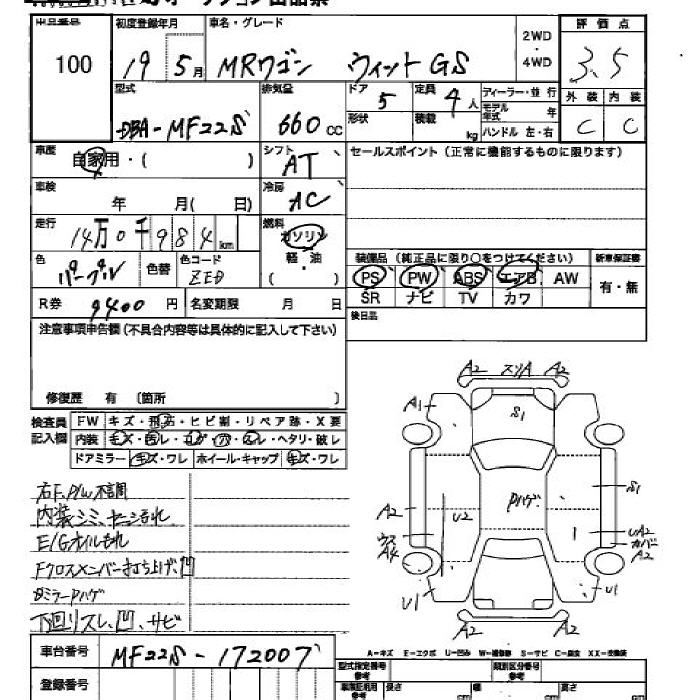 出品番号 初度登録年月 車名・グレード 2WD・4WD 評価点
100 19 5月 MRワゴン ウィット GS 3.5
型式 排気量 ドア 5 定員 4人 ディーラー・並行 外装 内装
DBA-MF22S 660cc 形状 積載 kg モデル年式 年 C C
ハンドル 左・右
車歴 自家用・( ) シフト AT セールスポイント(正常に機能するものに限ります)
車検 年 月( 日) 冷房 AC
走行 14万0千984km 燃料 ガソリン
軽・油
( )
色 パープル 色替 色コード ZED 装備品(純正品に限り○をつけてください) 新車保証書
PS PW ABS エアB AW 有・無
SR ナビ TV カワ
R券 9400円 名変期限 月 日 後日品
注意事項申告欄(不具合内容等は具体的に記入して下さい)
修復歴 有 〔箇所 〕
検査員記入欄 FW キズ・飛石・ヒビ割・リペア跡・X要
内装 キズ・汚レ・コゲ・穴・スレ・ヘタリ・破レ
ドアミラー キズ・ワレ ホイール・キャップ キズ・ワレ
右F.P/W不調
内装シミ、ヤニ汚れ
E/Gオイルもれ
Fクロスメンバー打ち上げ、凹
Bミラーpハゲ
下廻りスレ、凹、サビ
A2 スリA A2
A1 S1
Pハゲ S1
A2 U2
ウス A4 1 UA2 カバー A2
U1 U1
A2 A2
A-キズ E-エクボ U-凹み W-補修跡 S-サビ C-腐食 XX-交換済
車台番号 MF22S-172007
型式指定番号 参考 類別区分番号 参考
登録番号
長さ 幅 高さ